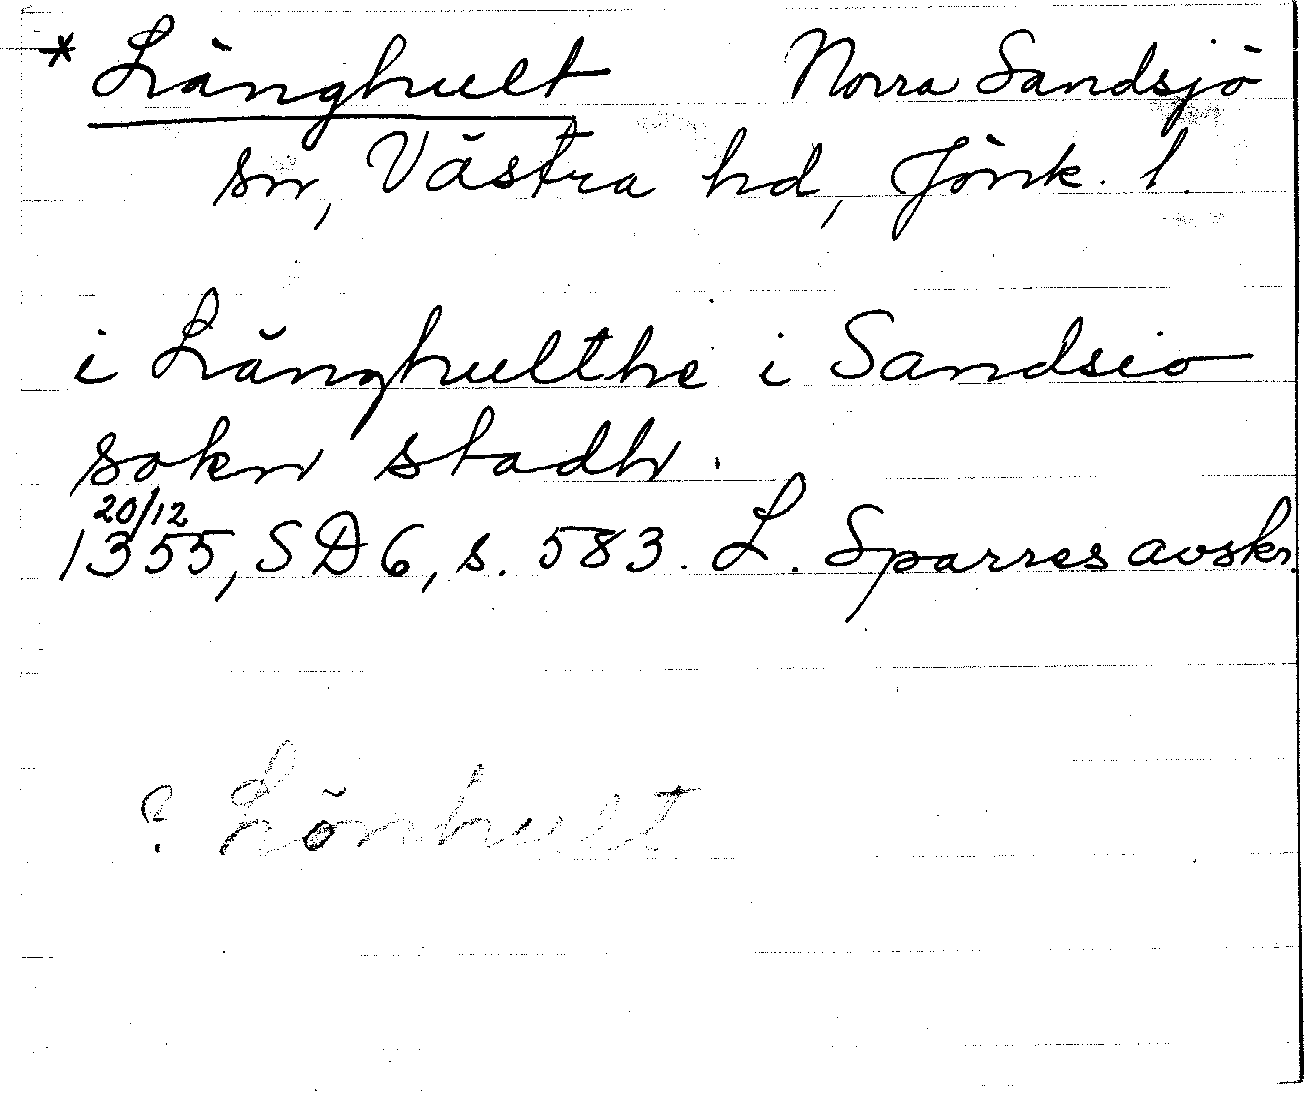 * Långhult Norra Sandsjö
sn, Västra hd, Jönk. l.
i Långhulthe i Sandsio
sokn stadh.
20/12
1355, SD 6, s. 583. L. Sparres avskr.
? Lönhult